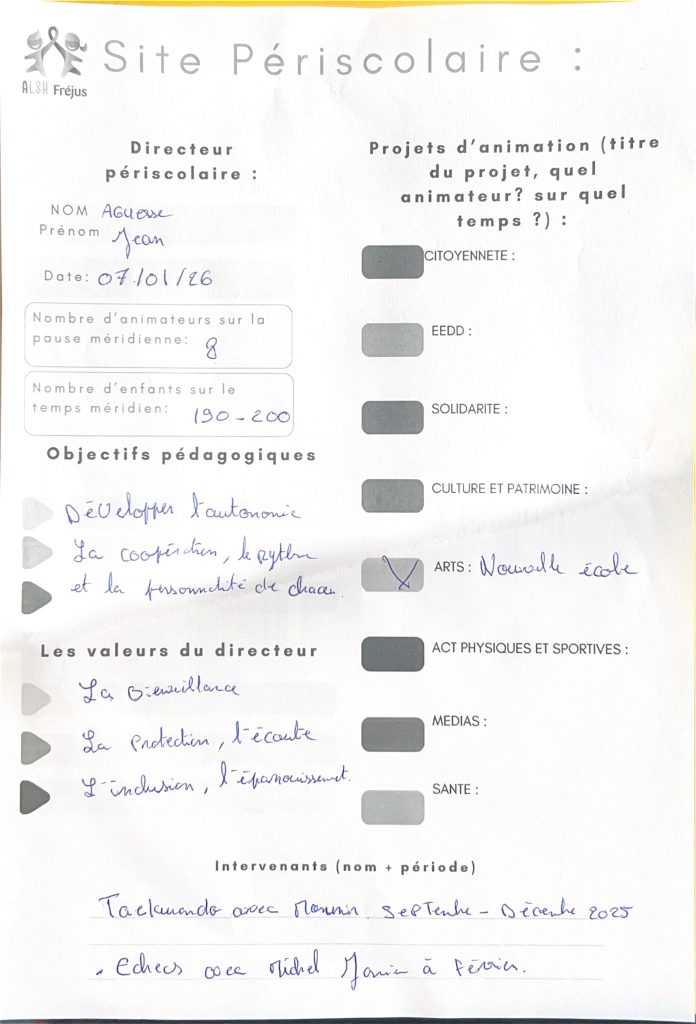 ALSH Fréjus
Site Périscolaire :
Directeur
périscolaire :
NOM Aguesse
Prénom Jean
Date: 07/01/26
Nombre d'animateurs sur la
pause méridienne: 8
Nombre d'enfants sur le
temps méridien: 190-200
Objectifs pédagogiques
Développer l'autonomie
La coopération, le rythme
et la personnalité de chacun.
Les valeurs du directeur
La Bienveillance
La Protection, l'écoute
L'inclusion, l'épanouissement.
Projets d'animation (titre
du projet, quel
animateur? sur quel
temps ?) :
CITOYENNETE :
EEDD :
SOLIDARITE :
CULTURE ET PATRIMOINE :
ARTS : Nouvelle école
ACT PHYSIQUES ET SPORTIVES :
MEDIAS :
SANTE :
Intervenants (nom + période)
Taekwando avec Septembre - Décembre 2025
. Echecs avec Michel à Février.